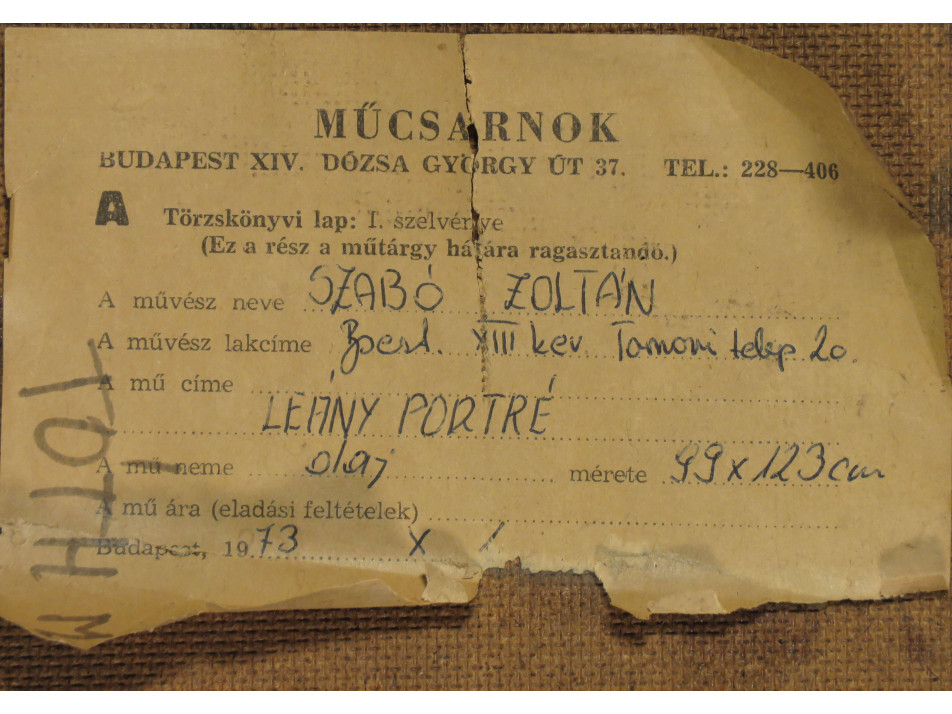 MŰCSARNOK
BUDAPEST XIV. DÓZSA GYÖRGY ÚT 37. TEL.: 228—406
A Törzskönyvi lap: I. szelvénye
(Ez a rész a műtárgy hátára ragasztandó.)
A művész neve SZABÓ ZOLTÁN
A művész lakcíme Bpest. XIII ker. Tomori telep 20.
A mű címe
LEÁNY PORTRÉ
A mű neme olaj mérete 99 x 123 cm
A mű ára (eladási feltételek)
Budapest, 1973 X 1
TOTH M